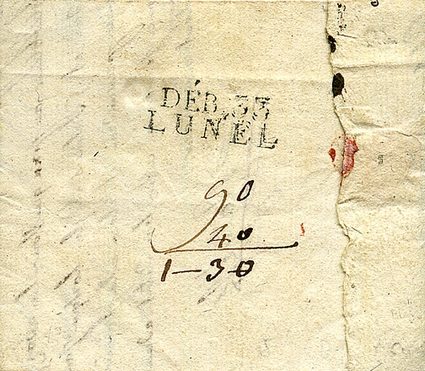 DÉB.33
LUNEL
90
40
1-30